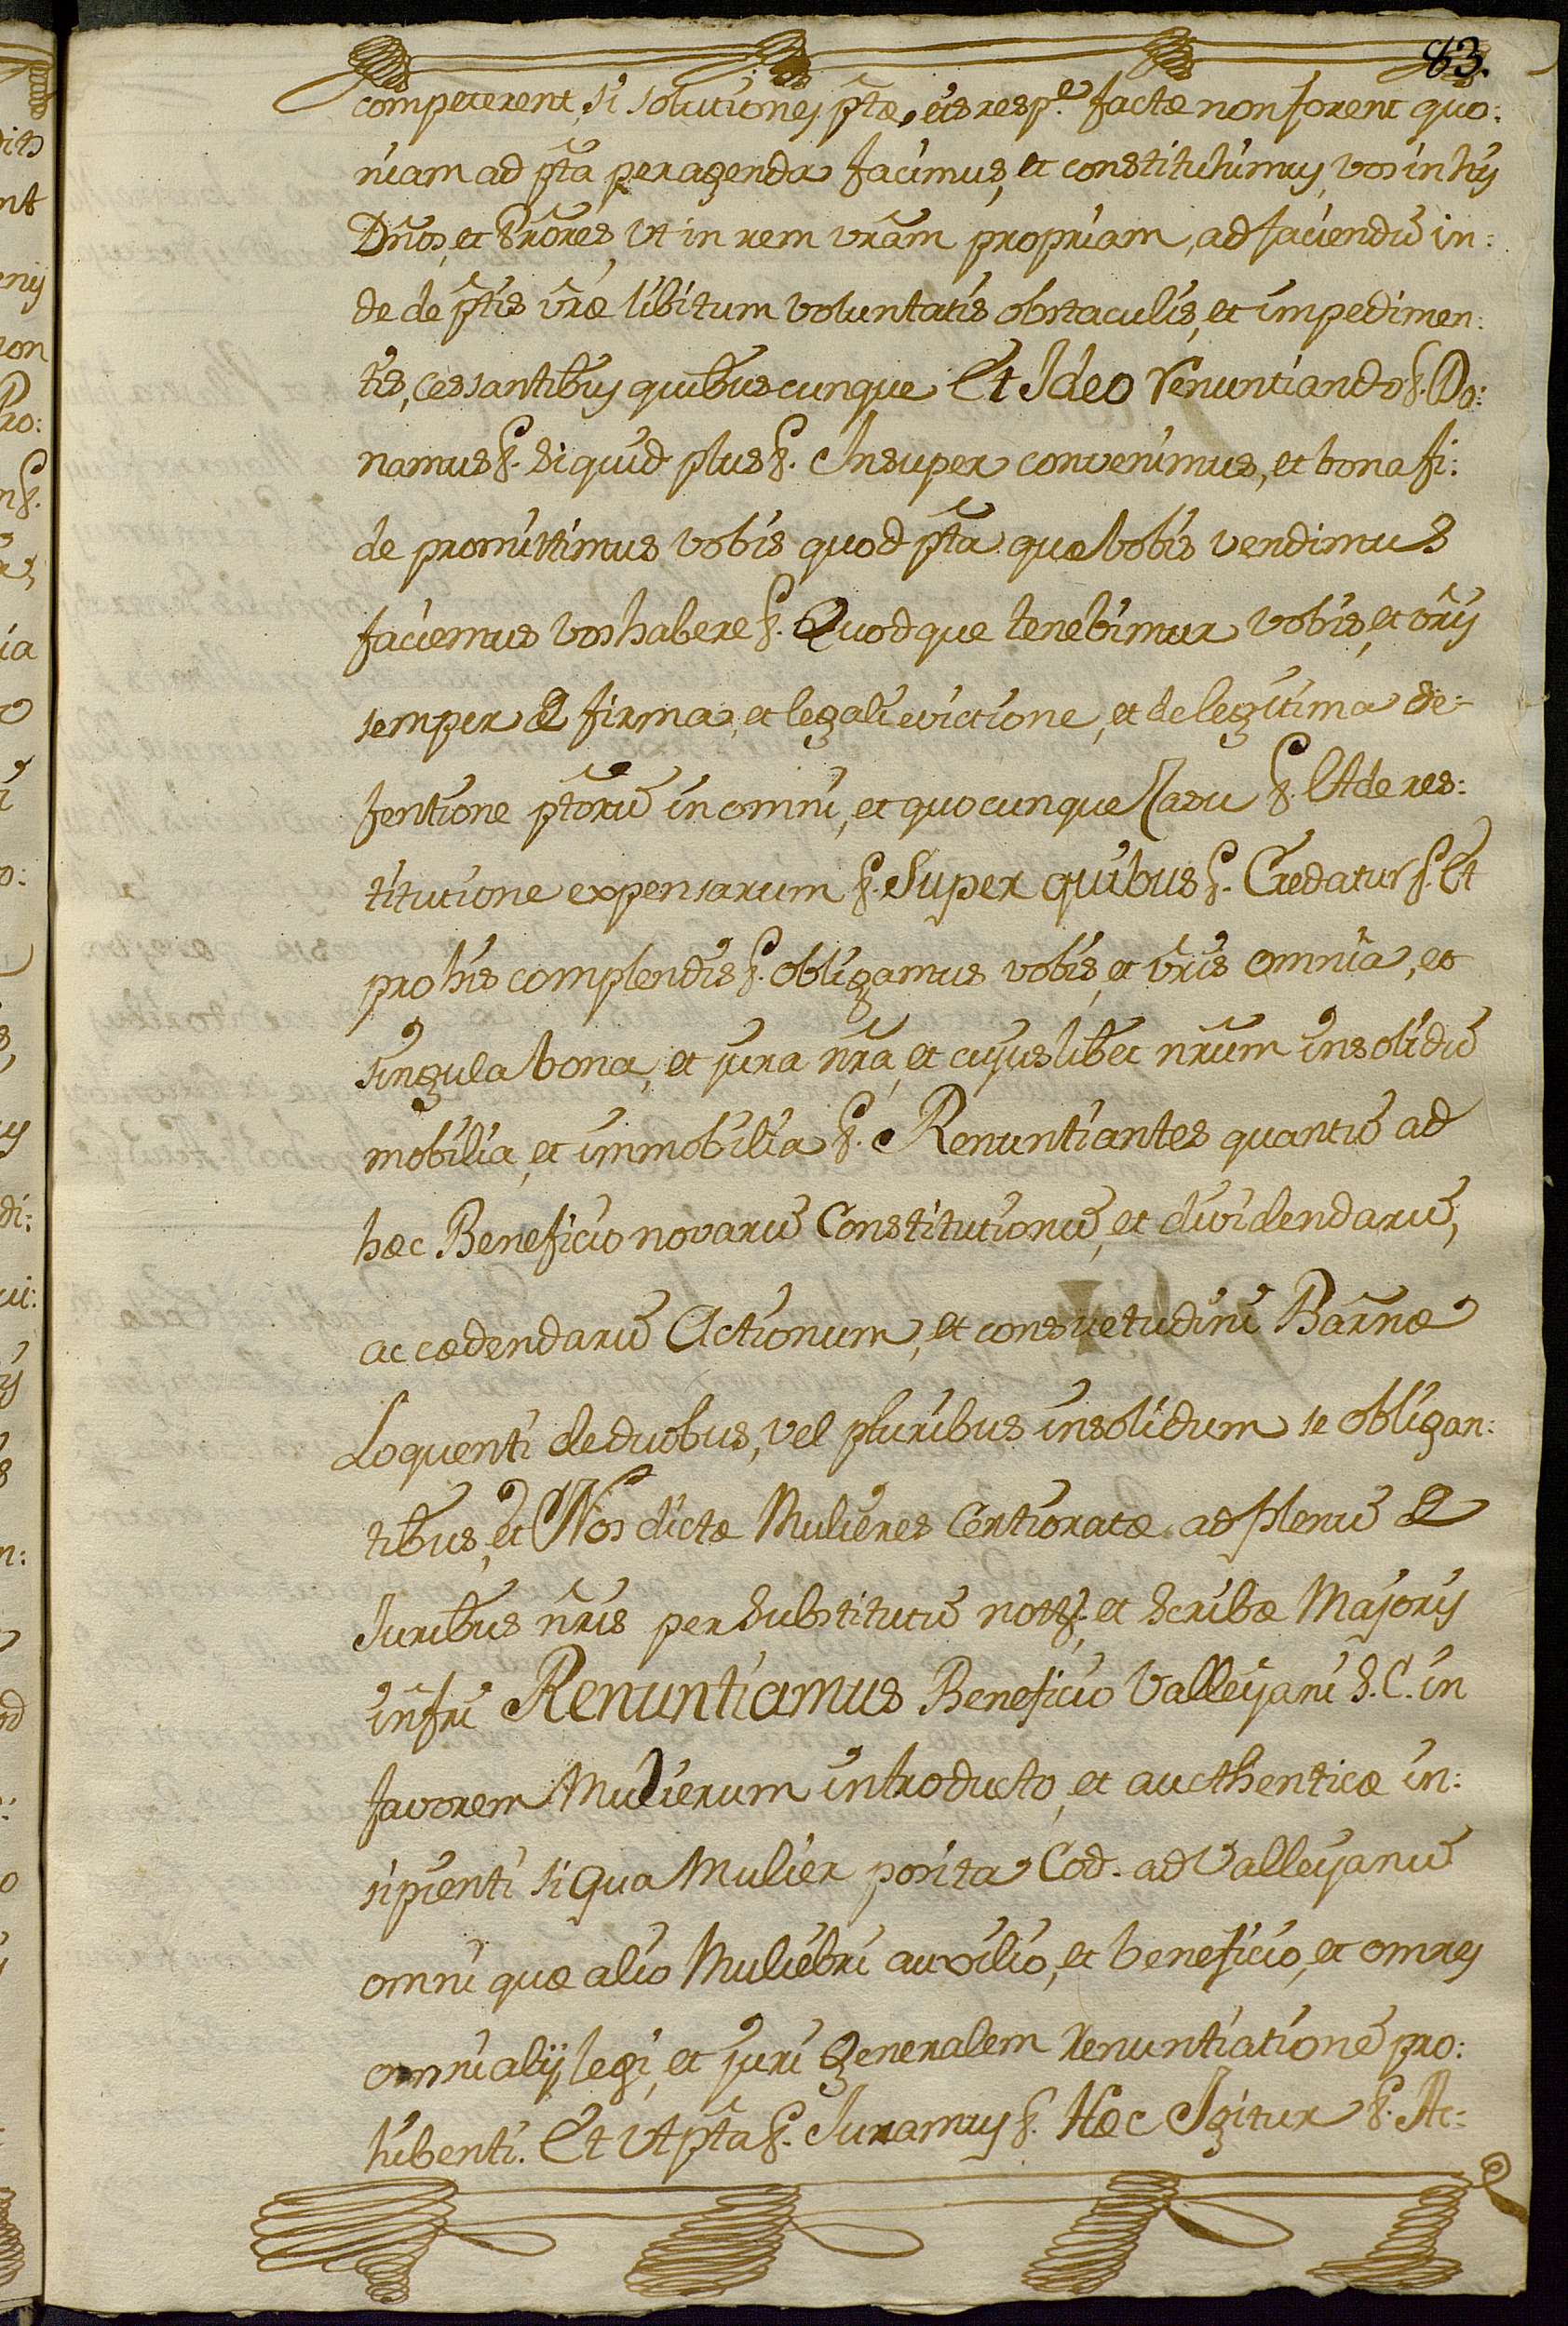 83.
competerent, si solutiones p̃tæ, eis resp.e factæ non forent quo:
niam ad p̃ta peragenda facimus, et constituimus, vos in hys
Dños, et Prõres, Ut in rem vr̃am propriam, ad faciendũ in:
de de p̃tis vr̃æ libitum voluntatis obstaculis, et impedimen:
tis, cessantibus quibuscunque Et Ideo renuntiando &. Do:
namus &. Si quid plus &. Insuper convenimus, et bona fi:
de promittimus vobis quod p̃ta quæ vobis vendimus
faciemus vos habere &. Quodque tenebimur vobis, et vr̃ys
semper de firma, et legali evictione, et de legitima de-
fentione p̃torũ in omni, et quocunque Casu &. Et de res:
titutione expensarum &. Super quibus &. Credatur &. Et
pro his complendis &. obligamus vobis, et vr̃is omnia, et
singula bona, et jura nr̃a, et cujuslibet nr̃um insolidũ
mobilia, et immobilia &. Renuntiantes quantũ ad
hæc Beneficio novarũ Constitutionũ, et dividendarũ,
ac cædendarũ Actionum, et consuetudini Barñæ
Loquenti de duobus, vel pluribus insolidum se obligan:
tibus, et Nos dictæ Mulieres Certioratæ ad plenũ de
Juribus nr̃is per Substitutũ nott&. et Scribæ Majoris
infr̃i Renuntiamus Beneficio Valleyani S. C. in
favorem Mulierum introducto, et aucthenticæ in:
sipienti si qua Mulier posita Cod. ad Valleyanũ
omni quæ alio Muliebri auxilio, et beneficio, et omnes
omni alij legi, et juri generalem renuntiationẽ pro:
hibenti. Et Ut p̃ta &. Juramus &. Hæc Igitur &. Ac: